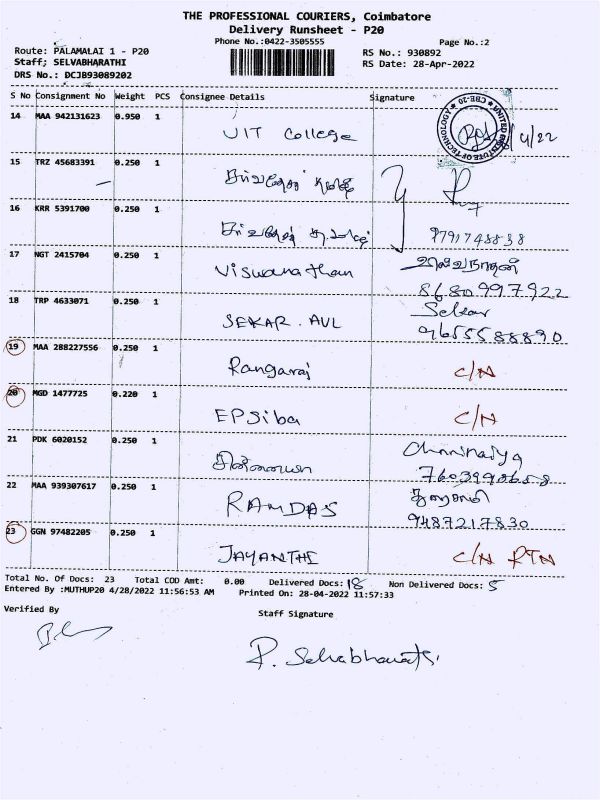 THE PROFESSIONAL COURIERS, Coimbatore
Delivery Runsheet - P20
Phone No.:0422-3505555 Page No.:2
Route: PALAMALAI 1 - P20 RS No.: 930892
Staff; SELVABHARATHI RS Date: 28-Apr-2022
DRS No.: DCJB93089202
S No Consignment No Weight PCS Consignee Details Signature
14 MAA 942131623 0.950 1
UIT College 4/22
UNITED INSTITUTE OF TECHNOLOGY CBE-20
15 TRZ 45683391 0.250 1
16 KRR 5391700 0.250 1
9791743838
17 NGT 2415704 0.250 1
Viswanathan விஸ்வநாதன்
8680997922
18 TRP 4633071 0.250 1 Sekar
SEKAR. AVL 9655588890
19 MAA 288227556 0.250 1
Rangaraj C/N
20 MGD 1477725 0.220 1
EPSiba C/N
21 PDK 6020152 0.250 1
சின்னையா
22 MAA 939307617 0.250 1
RAMDAS 9487217830
23 GGN 97482205 0.250 1
JAYANTHI C/N RTN
Total No. Of Docs: 23 Total COD Amt: 0.00 Delivered Docs: 18 Non Delivered Docs: 5
Entered By :MUTHUP20 4/28/2022 11:56:53 AM Printed On: 28-04-2022 11:57:33
Verified By Staff Signature
P. Selvabharathi